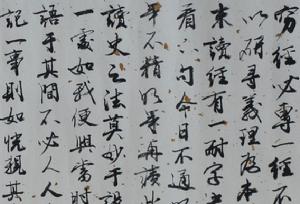 窮經必專一經不
以研尋義理為本
末讀經有一耐字
看下句今日不通
年不精明年再讀
讀史之法莫妙于設
一處如我便與當時
語于其間不必人人
記一事則如恍親其